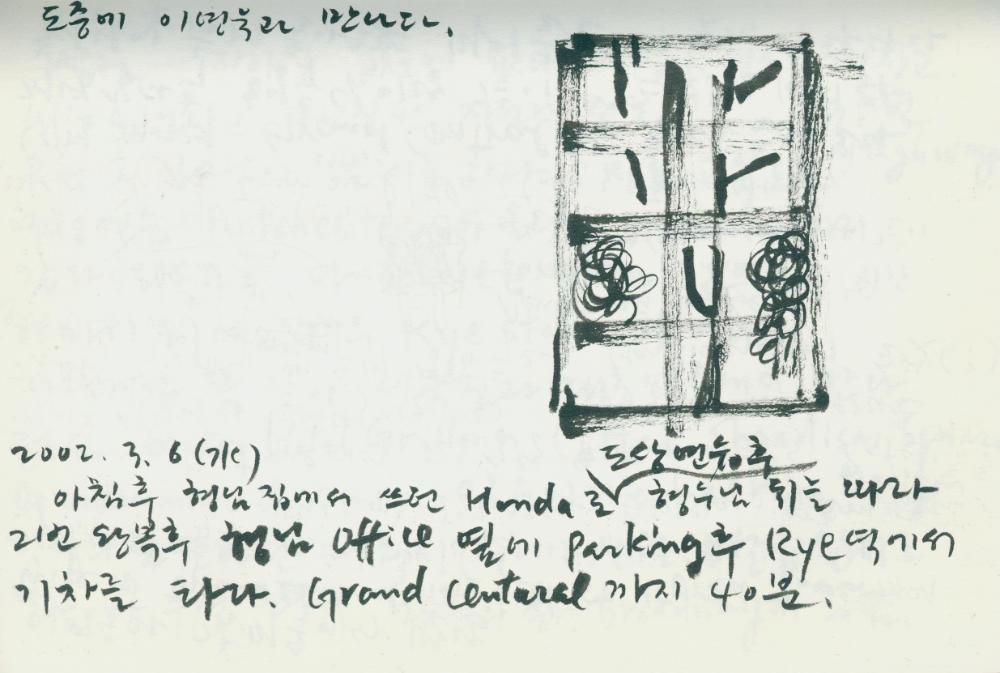 도중에 이년욱과 만나다.
2002. 3. 6 (水)
도상연습후
아침후 형님 집에서 쓰던 Honda로 형수님 뒤를 따라
2번 왕복후 형님 Office 옆에 parking후 Rye역에서
기차를 타다. Grand Centural까지 40분.